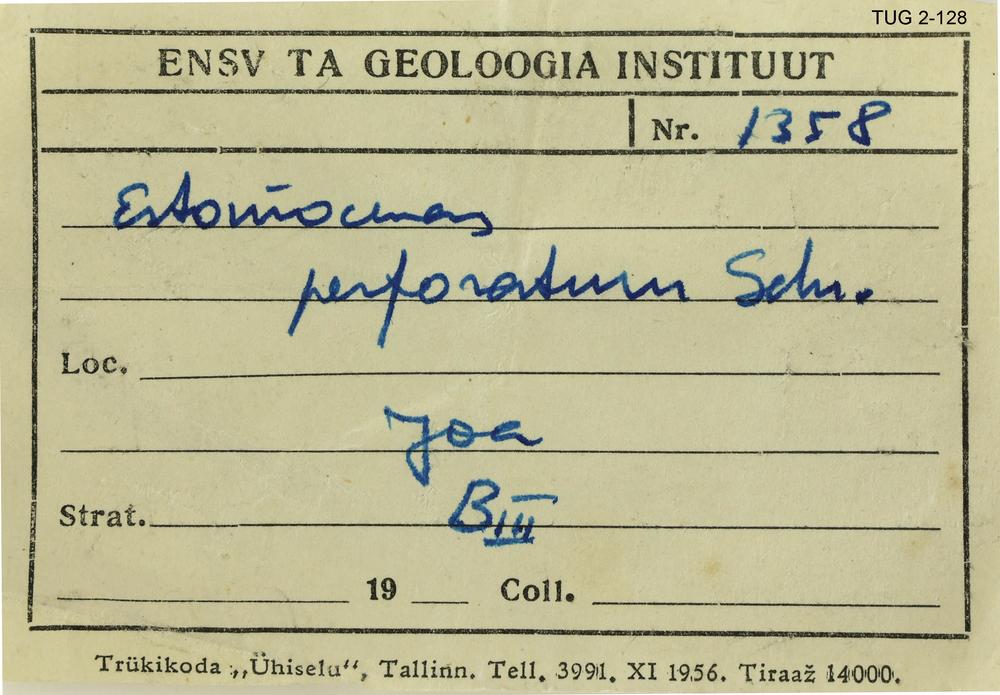 TUG 2-128
ENSV TA GEOLOOGIA INSTITUUT
Nr. 1358
Estonioceras
perforatum Sch.
Loc.
Joa
Strat. BIII
19 Coll.
Trükikoda „Ühiselu“, Tallinn. Tell. 3991. XI 1956. Tiraaž 14000.